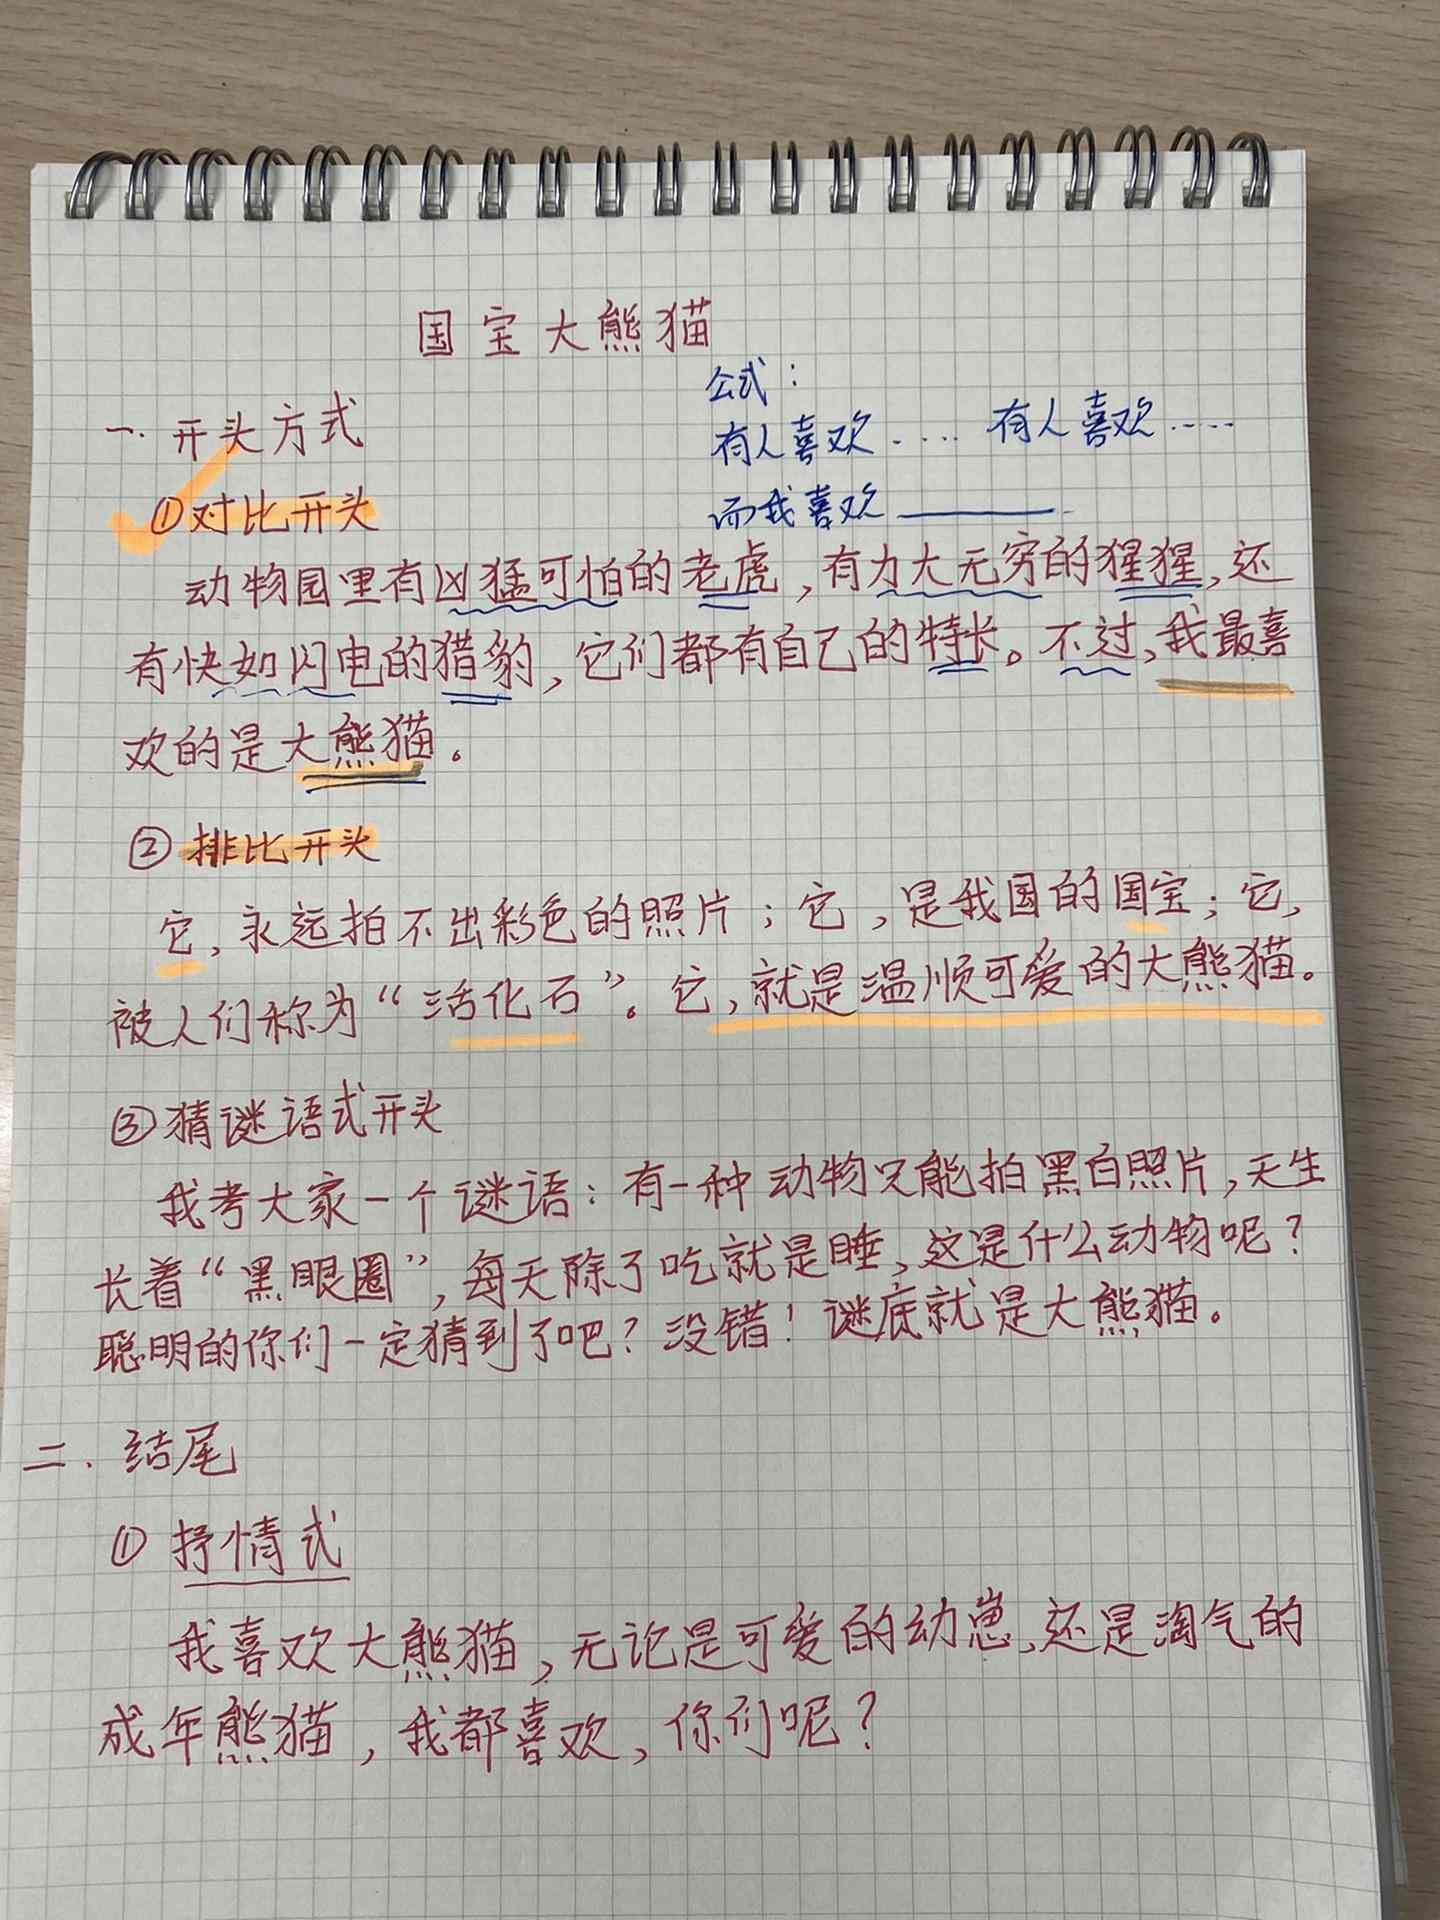 国宝大熊猫
公式：
一. 开头方式
有人喜欢..... 有人喜欢.....
①对比开头
而我喜欢______
动物园里有凶猛可怕的老虎，有力大无穷的猩猩，还
有快如闪电的猎豹，它们都有自己的特长。不过，我最喜
欢的是大熊猫。
② 排比开头
它，永远拍不出彩色的照片；它，是我国的国宝；它，
被人们称为“活化石”。它，就是温顺可爱的大熊猫。
③猜谜语式开头
我考大家一个谜语：有一种动物只能拍黑白照片，天生
长着“黑眼圈”，每天除了吃就是睡，这是什么动物呢？
聪明的你们一定猜到了吧？没错！谜底就是大熊猫。
二. 结尾
① 抒情式
我喜欢大熊猫，无论是可爱的幼崽，还是淘气的
成年熊猫，我都喜欢，你们呢？